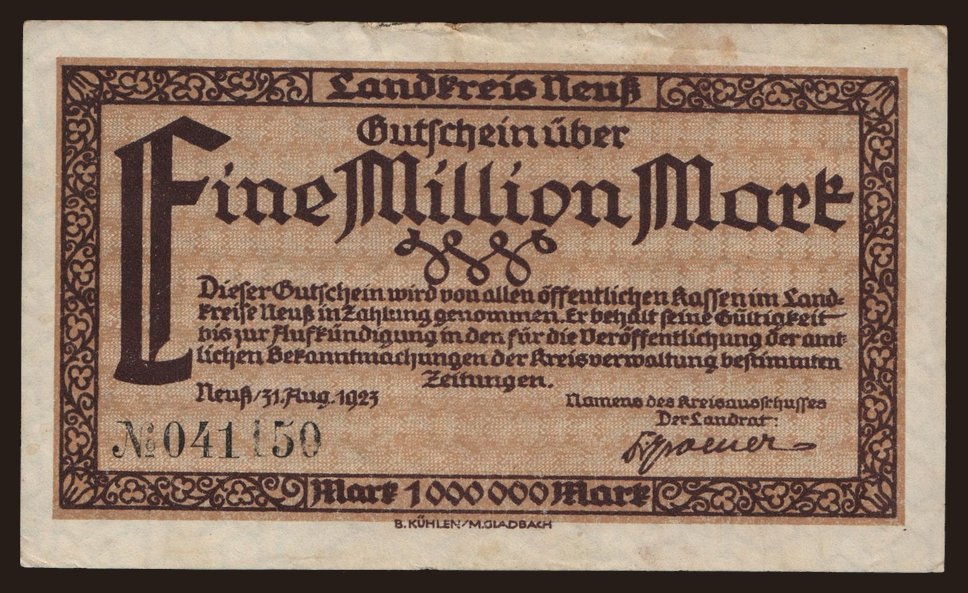 Landkreis Neuß
Gutschein über
Eine Million Mark
Dieser Gutschein wird von allen öffentlichen Kassen im Land-
kreise Neuß in Zahlung genommen. Er behält seine Gültigkeit
bis zur Aufkündigung in den für die Veröffentlichung der amt-
lichen Bekanntmachungen der Kreisverwaltung bestimmten
Zeitungen.
Neuß/31. Aug. 1923
Namens des Kreisausschusses
Der Landrat:
No 041150
Mark 1000000 Mark
B. KÜHLEN/M.GLADBACH